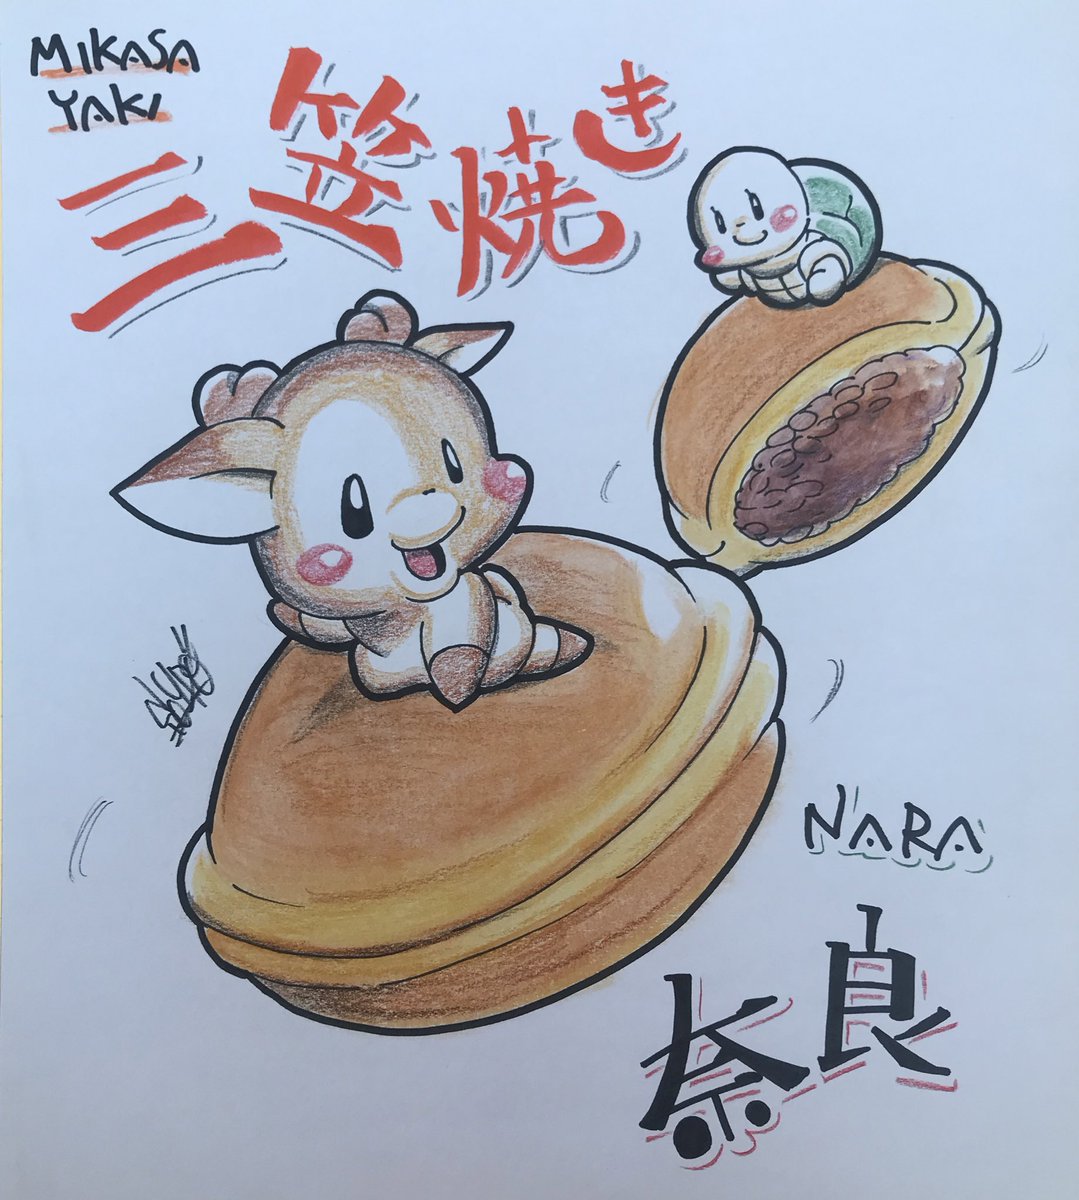 MIKASA
YAKI
三笠焼き
NARA
奈良